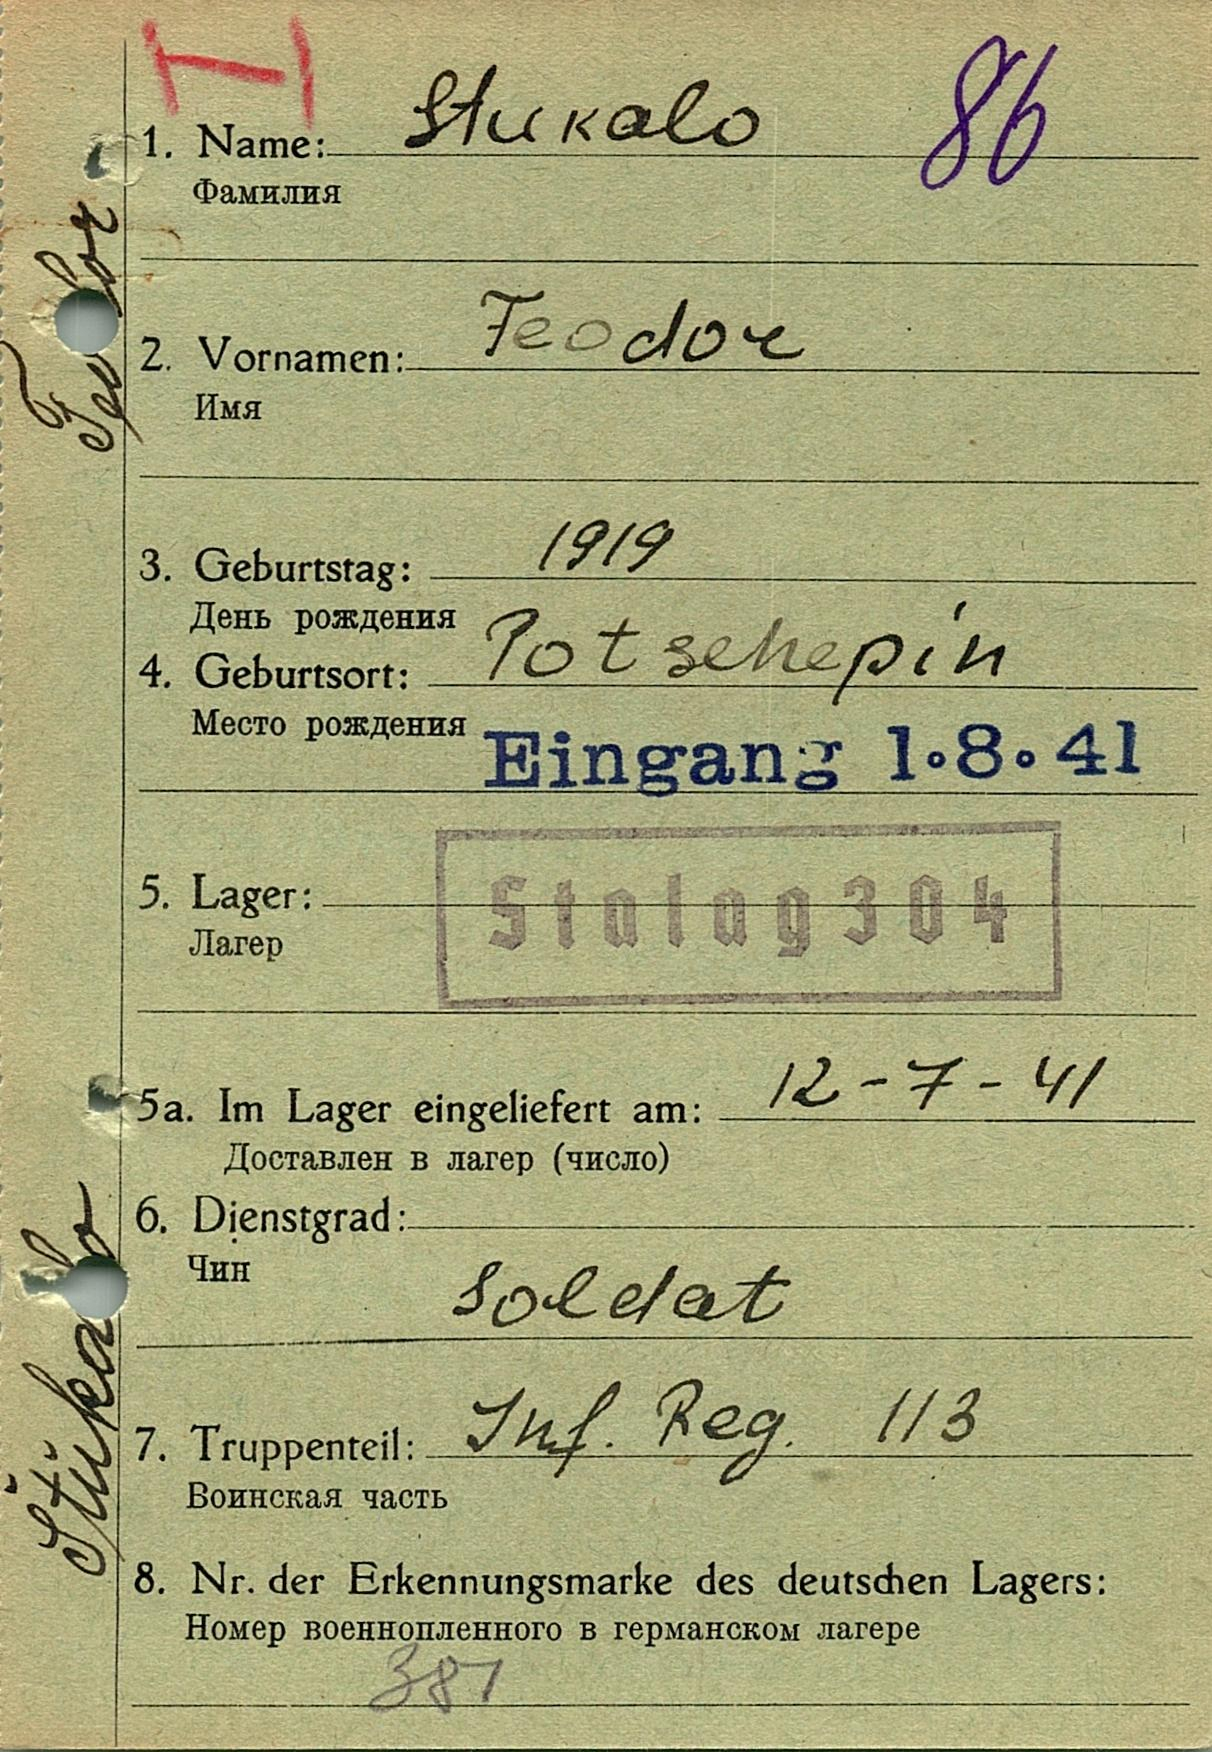 86
1. Name: Stukalo
Фамилия
2. Vornamen: Feodor
Имя
3. Geburtstag: 1919
День рождения
4. Geburtsort: Potschepin
Место рождения
Eingang 1.8.41
5. Lager: Stalag 304
Лагер
5a. Im Lager eingeliefert am: 12-7-41
Доставлен в лагер (число)
6. Dienstgrad:
Чин
Soldat
7. Truppenteil: Inf. Reg. 113
Воинская часть
8. Nr. der Erkennungsmarke des deutschen Lagers:
Номер военнопленного в германском лагере
387
Stukalo